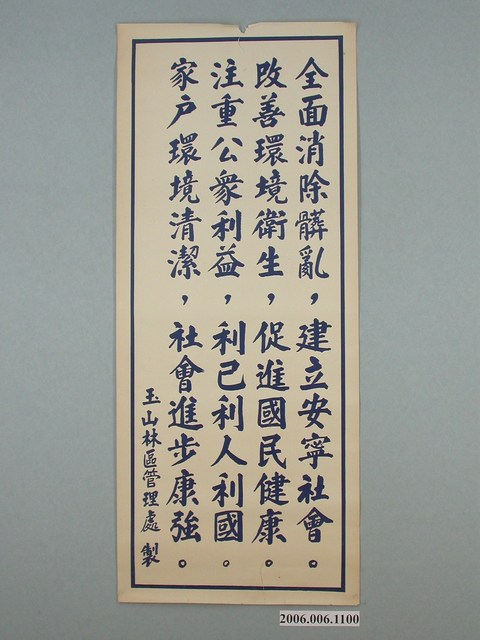 全面消除髒亂，建立安寧社會。
改善環境衛生，促進國民健康。
注重公眾利益，利已利人利國。
家戶環境清潔，社會進步康強。
玉山林區管理處 製
2006.006.1100